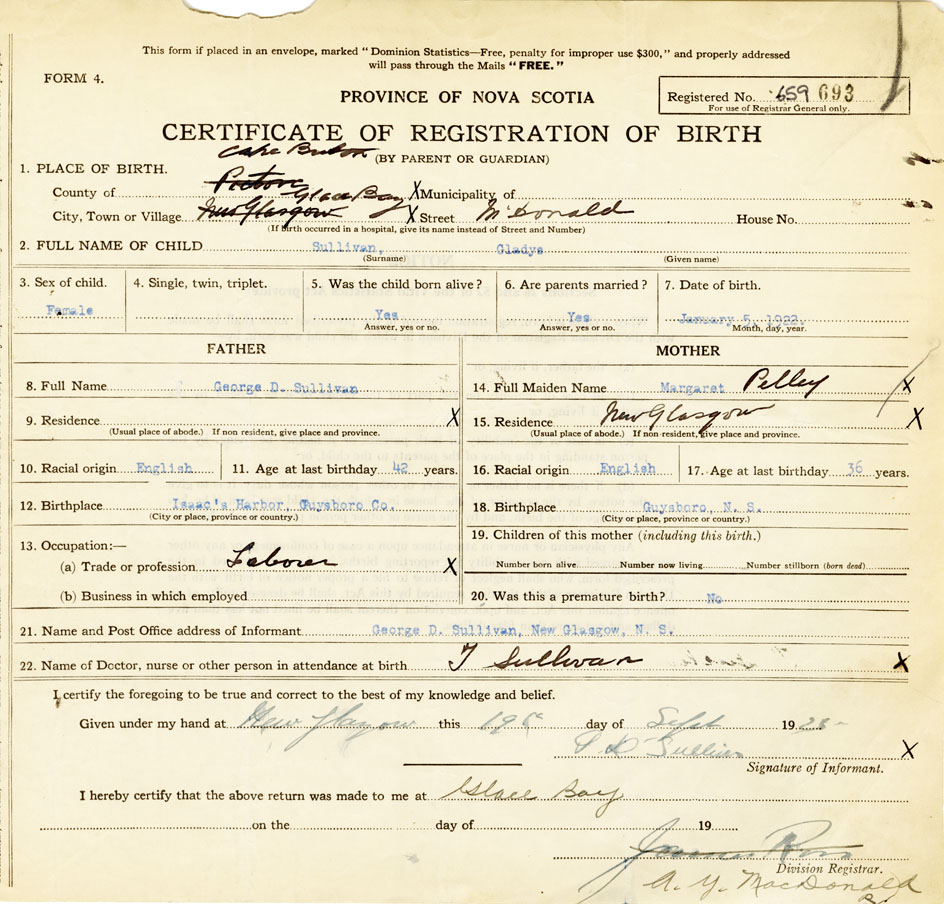 This form if placed in an envelope, marked "Dominion Statistics—Free, penalty for improper use $300," and properly addressed
will pass through the Mails "FREE."
FORM 4.
PROVINCE OF NOVA SCOTIA
Registered No. 659 693
For use of Registrar General only.
CERTIFICATE OF REGISTRATION OF BIRTH
(BY PARENT OR GUARDIAN)
1. PLACE OF BIRTH.
Cape Breton
County of Pictou Glace Bay X Municipality of
City, Town or Village New Glasgow X Street McDonald House No.
(If birth occurred in a hospital, give its name instead of Street and Number)
2. FULL NAME OF CHILD Sullivan, Gladys
(Surname) (Given name)
3. Sex of child. 4. Single, twin, triplet. 5. Was the child born alive? 6. Are parents married? 7. Date of birth.
Female Yes Yes January 5, 1922.
Answer, yes or no. Answer, yes or no. Month, day, year.
FATHER MOTHER
8. Full Name George D. Sullivan 14. Full Maiden Name Margaret Pelley X
9. Residence X 15. Residence New Glasgow X
(Usual place of abode.) If non resident, give place and province. (Usual place of abode.) If non-resident, give place and province.
10. Racial origin English 11. Age at last birthday 42 years. 16. Racial origin English 17. Age at last birthday 36 years.
12. Birthplace Isaac's Harbor, Guysboro Co. 18. Birthplace Guysboro, N. S.
(City or place, province or country.) (City or place, province or country.)
13. Occupation:— 19. Children of this mother (including this birth.)
(a) Trade or profession Laborer X Number born alive. Number now living. Number stillborn (born dead)
(b) Business in which employed 20. Was this a premature birth? No
21. Name and Post Office address of Informant George D. Sullivan, New Glasgow, N. S.
22. Name of Doctor, nurse or other person in attendance at birth Sullivan X
I certify the foregoing to be true and correct to the best of my knowledge and belief.
Given under my hand at New Glasgow this day of Sept 19
D Sullivan X
Signature of Informant.
I hereby certify that the above return was made to me at Glace Bay
on the day of 19
Ross
Division Registrar.
A. Y. MacDonald